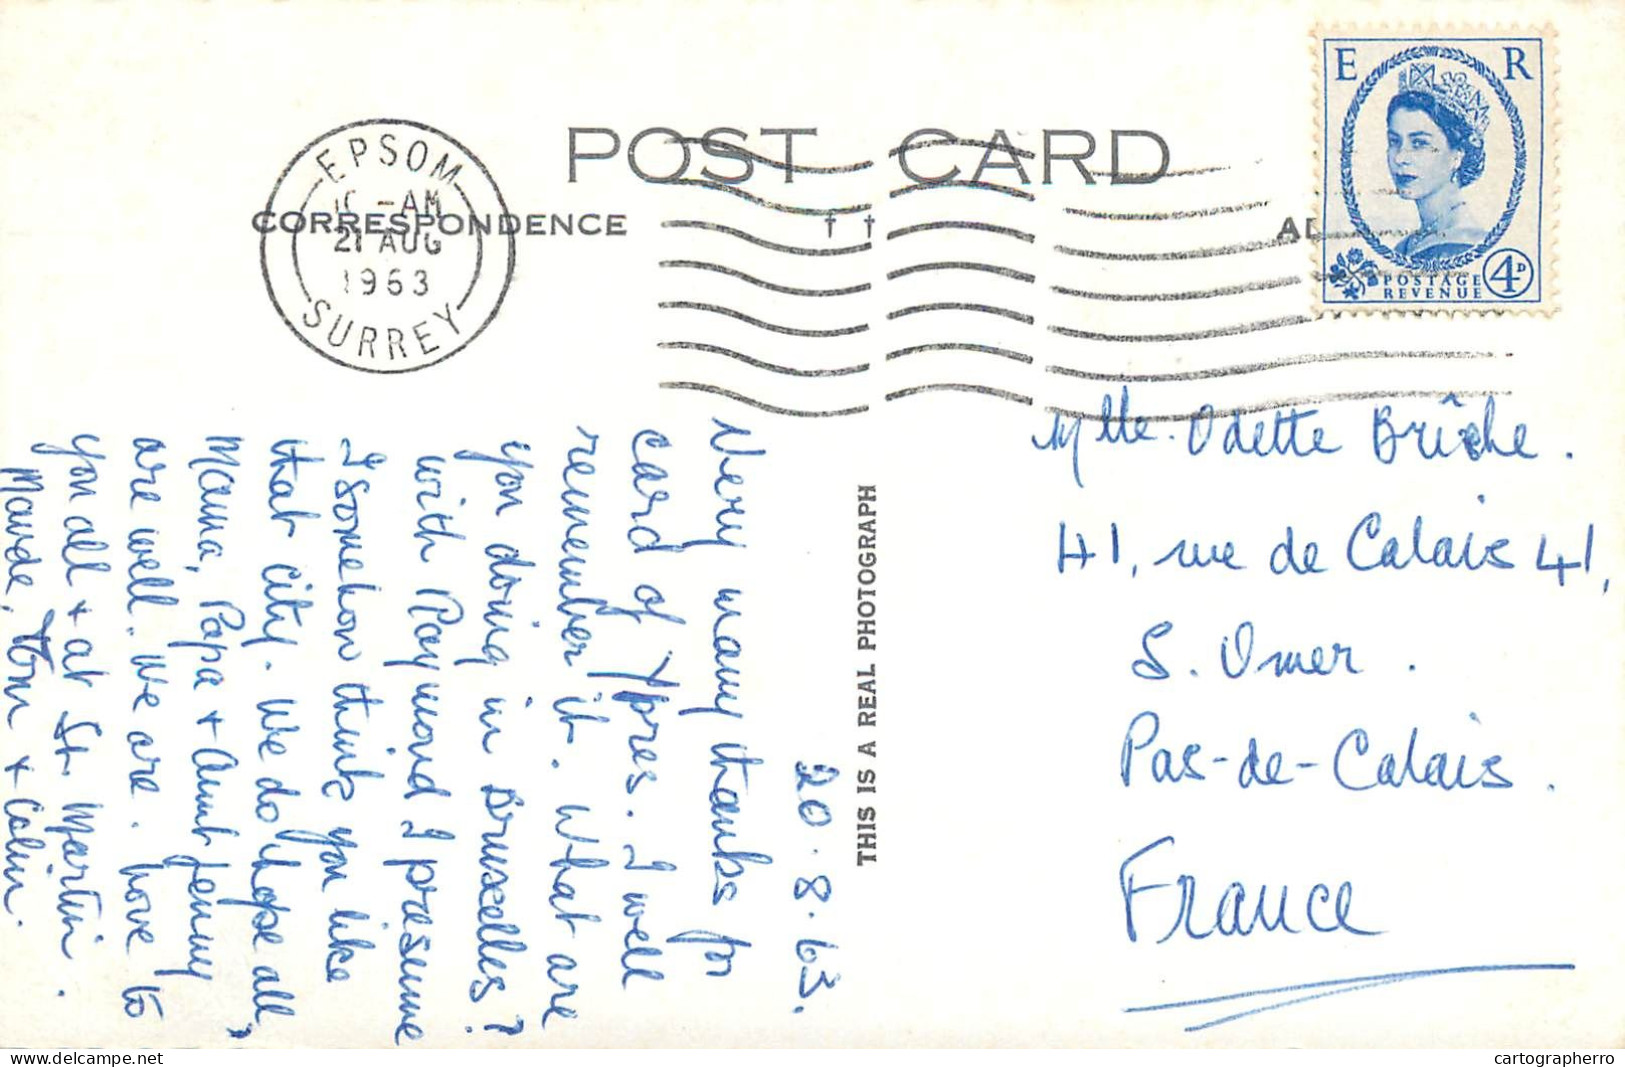 POST CARD
CORRESPONDENCE
EPSOM
-AM
21 AUG
1963
SURREY
E R
POSTAGE
REVENUE
4D
20.8.63.
Very many thanks for
card of Ypres. I well
remember it. What are
you doing in Bruxelles?
with Raymond I presume
I somehow think you like
that city. We do hope all,
Mama, Papa + Aunt Jenny
are well. We are. Love to
you all + at St. Martin.
Maude, Tom + Colin.
THIS IS A REAL PHOTOGRAPH
Mlle. Odette Brîche.
41, rue de Calais 41,
S. Omer.
Pas-de-Calais.
France
delcampe.net
cartographerro